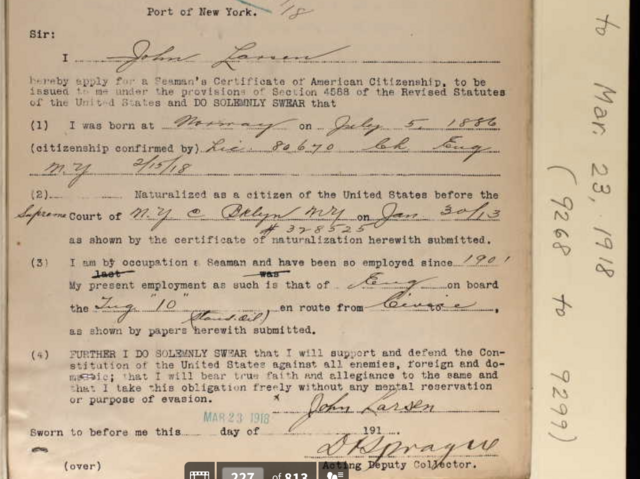 Port of New York.
/18
Sir:
I John Larsen
hereby apply for a Seaman's Certificate of American Citizenship, to be
issued to me under the provisions of Section 4588 of the Revised Statutes
of the United States and DO SOLEMNLY SWEAR that
(1) I was born at Norway on July 5, 1886
(citizenship confirmed by) Lic 80670 Ch Eng
N.Y 2/15/18
(2) Naturalized as a citizen of the United States before the
Supreme Court of N.Y C Bklyn N.Y on Jan 30/13
# 328525
as shown by the certificate of naturalization herewith submitted.
(3) I am by occupation a Seaman and have been so employed since 1901
last was
My present employment as such is that of Eng on board
the Tug "10" en route from to ,
(Stand. Oil)
as shown by papers herewith submitted.
(4) FURTHER I DO SOLEMNLY SWEAR that I will support and defend the Con-
stitution of the United States against all enemies, foreign and do-
mestic; that I will bear true faith and allegiance to the same and
that I take this obligation freely without any mental reservation
or purpose of evasion.
John Larsen
MAR 23 1918
Sworn to before me this day of 191
D Sprague
(over) Acting Deputy Collector.
to Mar. 23, 1918
(9268 to 9299)
227 of 813